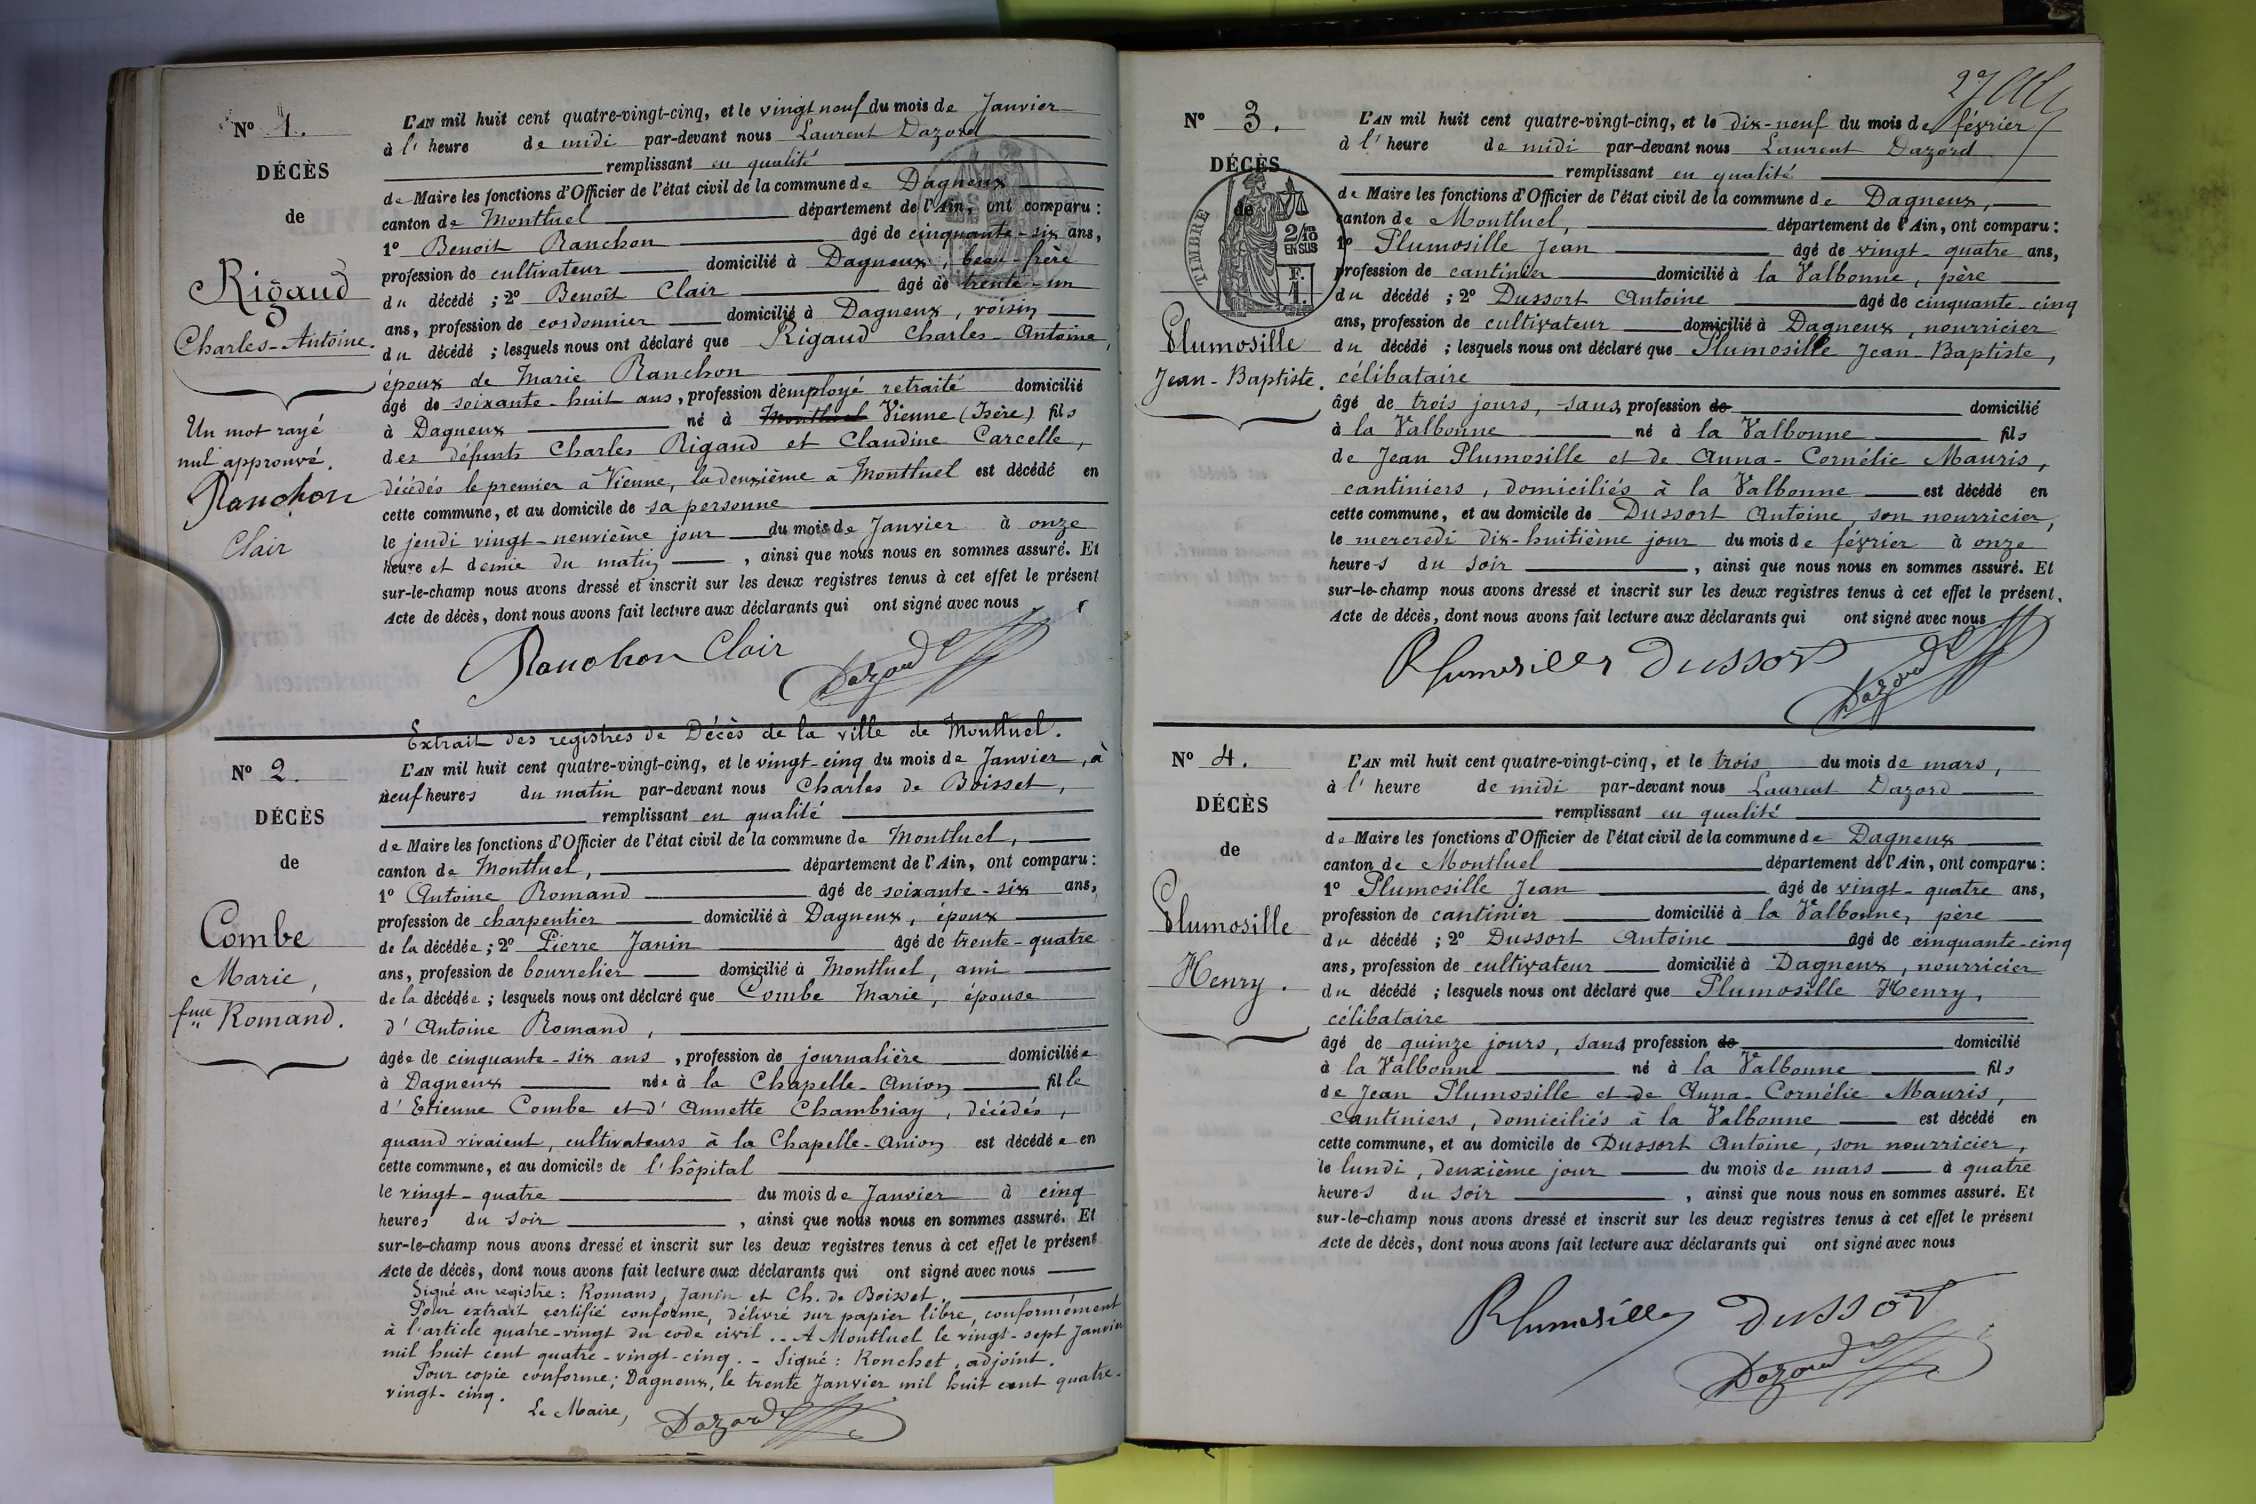 Nº 1.
DÉCÈS
de
Rigaud
Charles-Antoine.
Un mot rayé
nul approuvé.
Ranchon
Clair
L'AN mil huit cent quatre-vingt-cinq, et le vingt neuf du mois de Janvier
à l' heure de midi par-devant nous Laurent Dazord
remplissant en qualité
de Maire les fonctions d'Officier de l'état civil de la commune de Dagneux
canton de Montluel département de l'Ain, ont comparu :
1º Benoit Ranchon âgé de cinquante-six ans,
profession de cultivateur domicilié à Dagneux, beau-frère
du décédé ; 2º Benoît Clair âgé de trente-un
ans, profession de cordonnier domicilié à Dagneux, voisin
du décédé ; lesquels nous ont déclaré que Rigaud Charles-Antoine,
époux de Marie Ranchon
âgé de soixante-huit ans, profession d'employé retraité domicilié
à Dagneux né à Montluel Vienne (Isère) fils
des défunts Charles Rigaud et Claudine Carcelle,
décédés le premier à Vienne, la deuxième à Montluel est décédé en
cette commune, et au domicile de sa personne
le jeudi vingt-neuvième jour du mois de Janvier à onze
heure et demie du matin, ainsi que nous nous en sommes assuré. Et
sur-le-champ nous avons dressé et inscrit sur les deux registres tenus à cet effet le présent
Acte de décès, dont nous avons fait lecture aux déclarants qui ont signé avec nous
Ranchon Clair Dazord
Extrait des registres de Décès de la ville de Montluel.
Nº 2.
DÉCÈS
de
Combe
Marie,
fme Romand.
L'AN mil huit cent quatre-vingt-cinq, et le vingt-cinq du mois de Janvier, à
neuf heures du matin par-devant nous Charles de Boisset,
remplissant en qualité
de Maire les fonctions d'Officier de l'état civil de la commune de Montluel,
canton de Montluel, département de l'Ain, ont comparu :
1º Antoine Romand âgé de soixante-six ans,
profession de charpentier domicilié à Dagneux, époux
de la décédée ; 2º Pierre Janin âgé de trente-quatre
ans, profession de bourrelier domicilié à Montluel, ami
de la décédée ; lesquels nous ont déclaré que Combe Marie, épouse
d'Antoine Romand,
âgée de cinquante-six ans, profession de journalière domiciliée
à Dagneux née à la Chapelle-Anion fille
d'Etienne Combe et d'Annette Chambriay, décédés,
quand vivaient, cultivateurs à la Chapelle-Anion est décédée en
cette commune, et au domicile de l'hôpital
le vingt-quatre du mois de Janvier à cinq
heures du soir, ainsi que nous nous en sommes assuré. Et
sur-le-champ nous avons dressé et inscrit sur les deux registres tenus à cet effet le présent
Acte de décès, dont nous avons fait lecture aux déclarants qui ont signé avec nous
Signé au registre : Romans, Janin et Ch. de Boisset.
Pour extrait certifié conforme, délivré sur papier libre, conformément
à l'article quatre-vingt du code civil. - A Montluel le vingt-sept Janvier
mil huit cent quatre-vingt-cinq. - Signé : Ronchet, adjoint.
Pour copie conforme ; Dagneux, le trente Janvier mil huit cent quatre-
vingt-cinq.
Le Maire, Dazord
Nº 3.
DÉCÈS
de
TIMBRE
2/10es
EN SUS
F.
1.
Plumosille
Jean-Baptiste.
L'AN mil huit cent quatre-vingt-cinq, et le dix-neuf du mois de février
à l' heure de midi par-devant nous Laurent Dazord
remplissant en qualité
de Maire les fonctions d'Officier de l'état civil de la commune de Dagneux,
canton de Montluel, département de l'Ain, ont comparu :
1º Plumosille Jean âgé de vingt-quatre ans,
profession de cantinier domicilié à la Valbonne, père
du décédé ; 2º Dussort Antoine âgé de cinquante-cinq
ans, profession de cultivateur domicilié à Dagneux, nourricier
du décédé ; lesquels nous ont déclaré que Plumosille Jean-Baptiste,
célibataire
âgé de trois jours, sans profession de domicilié
à la Valbonne né à la Valbonne fils
de Jean Plumosille et de Anna-Cornélie Mauris,
cantiniers, domiciliés à la Valbonne est décédé en
cette commune, et au domicile de Dussort Antoine, son nourricier,
le mercredi dix-huitième jour du mois de février à onze
heures du soir, ainsi que nous nous en sommes assuré. Et
sur-le-champ nous avons dressé et inscrit sur les deux registres tenus à cet effet le présent.
Acte de décès, dont nous avons fait lecture aux déclarants qui ont signé avec nous
Plumosilles Dussort Dazord
Nº 4.
DÉCÈS
de
Plumosille
Henry.
L'AN mil huit cent quatre-vingt-cinq, et le trois du mois de mars,
à l' heure de midi par-devant nous Laurent Dazord
remplissant en qualité
de Maire les fonctions d'Officier de l'état civil de la commune de Dagneux
canton de Montluel département de l'Ain, ont comparu :
1º Plumosille Jean âgé de vingt-quatre ans,
profession de cantinier domicilié à la Valbonne, père
du décédé ; 2º Dussort Antoine âgé de cinquante-cinq
ans, profession de cultivateur domicilié à Dagneux, nourricier
du décédé ; lesquels nous ont déclaré que Plumosille Henry,
célibataire
âgé de quinze jours, sans profession de domicilié
à la Valbonne né à la Valbonne fils
de Jean Plumosille et de Anna-Cornélie Mauris,
cantiniers, domiciliés à la Valbonne est décédé en
cette commune, et au domicile de Dussort Antoine, son nourricier,
le lundi, deuxième jour du mois de mars à quatre
heures du soir, ainsi que nous nous en sommes assuré. Et
sur-le-champ nous avons dressé et inscrit sur les deux registres tenus à cet effet le présent
Acte de décès, dont nous avons fait lecture aux déclarants qui ont signé avec nous
Plumosilles Dussort
Dazord